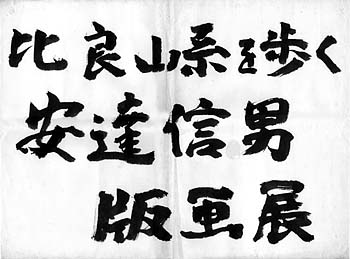 比良山系を歩く
安達信男
版画展